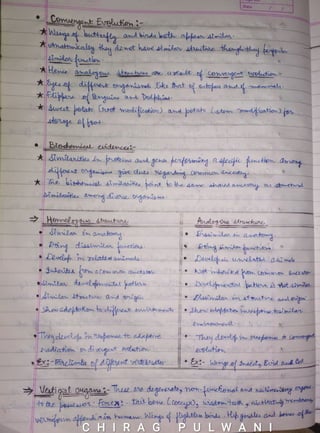 Convergent Evolution :-
Wings of butterfly and birds both appear similar.
Anatomically they do not have similar structure though they perform
similar function
Hence analogous structure are result of convergent evolution
Eyes of different organisms like that of octopus and of mammals
Flippers of Penguins and Dolphins.
Sweet potato (root modification) and potato (stem modification) for
storage of food
Biochemical evidences:-
Similarities in proteins and genes performing a specific function among
different organisms give clues regarding common ancestry.
The biochemical similarities point to the same shared ancestry as structural
similarities among diverse organisms
Homologous structure
Analogous structure
Similar in anatomy
Dissimilar in anatomy.
Doing dissimilar functions
Doing similar functions
Develop in related animals.
Develop in unrelated animals
Inherited from a common ancestor
Not inherited from common ancestor
Similar developmental pattern
Developmental pattern is not similar
Similar structure and origin
Dissimilar in structure and origin
Show adaptation to different environment
Show adaptation similar
environment
They develop in response to adaptive
They develop in response to convergent
radiation or divergent evolution
evolution
Ex:- Forelimbs of different vertebrates
Ex:- Wings of Insects, Bird and Bat
Vestigial organs:- These are degenerate, non-functional and organs
to the possessor. For ex:- Tail bone (coccyx), wisdom tooth, nictitating membrane
vermiform appendix in human. Wings of flightless birds. Hip girdles and bones of the
CHIRAG PULWANI